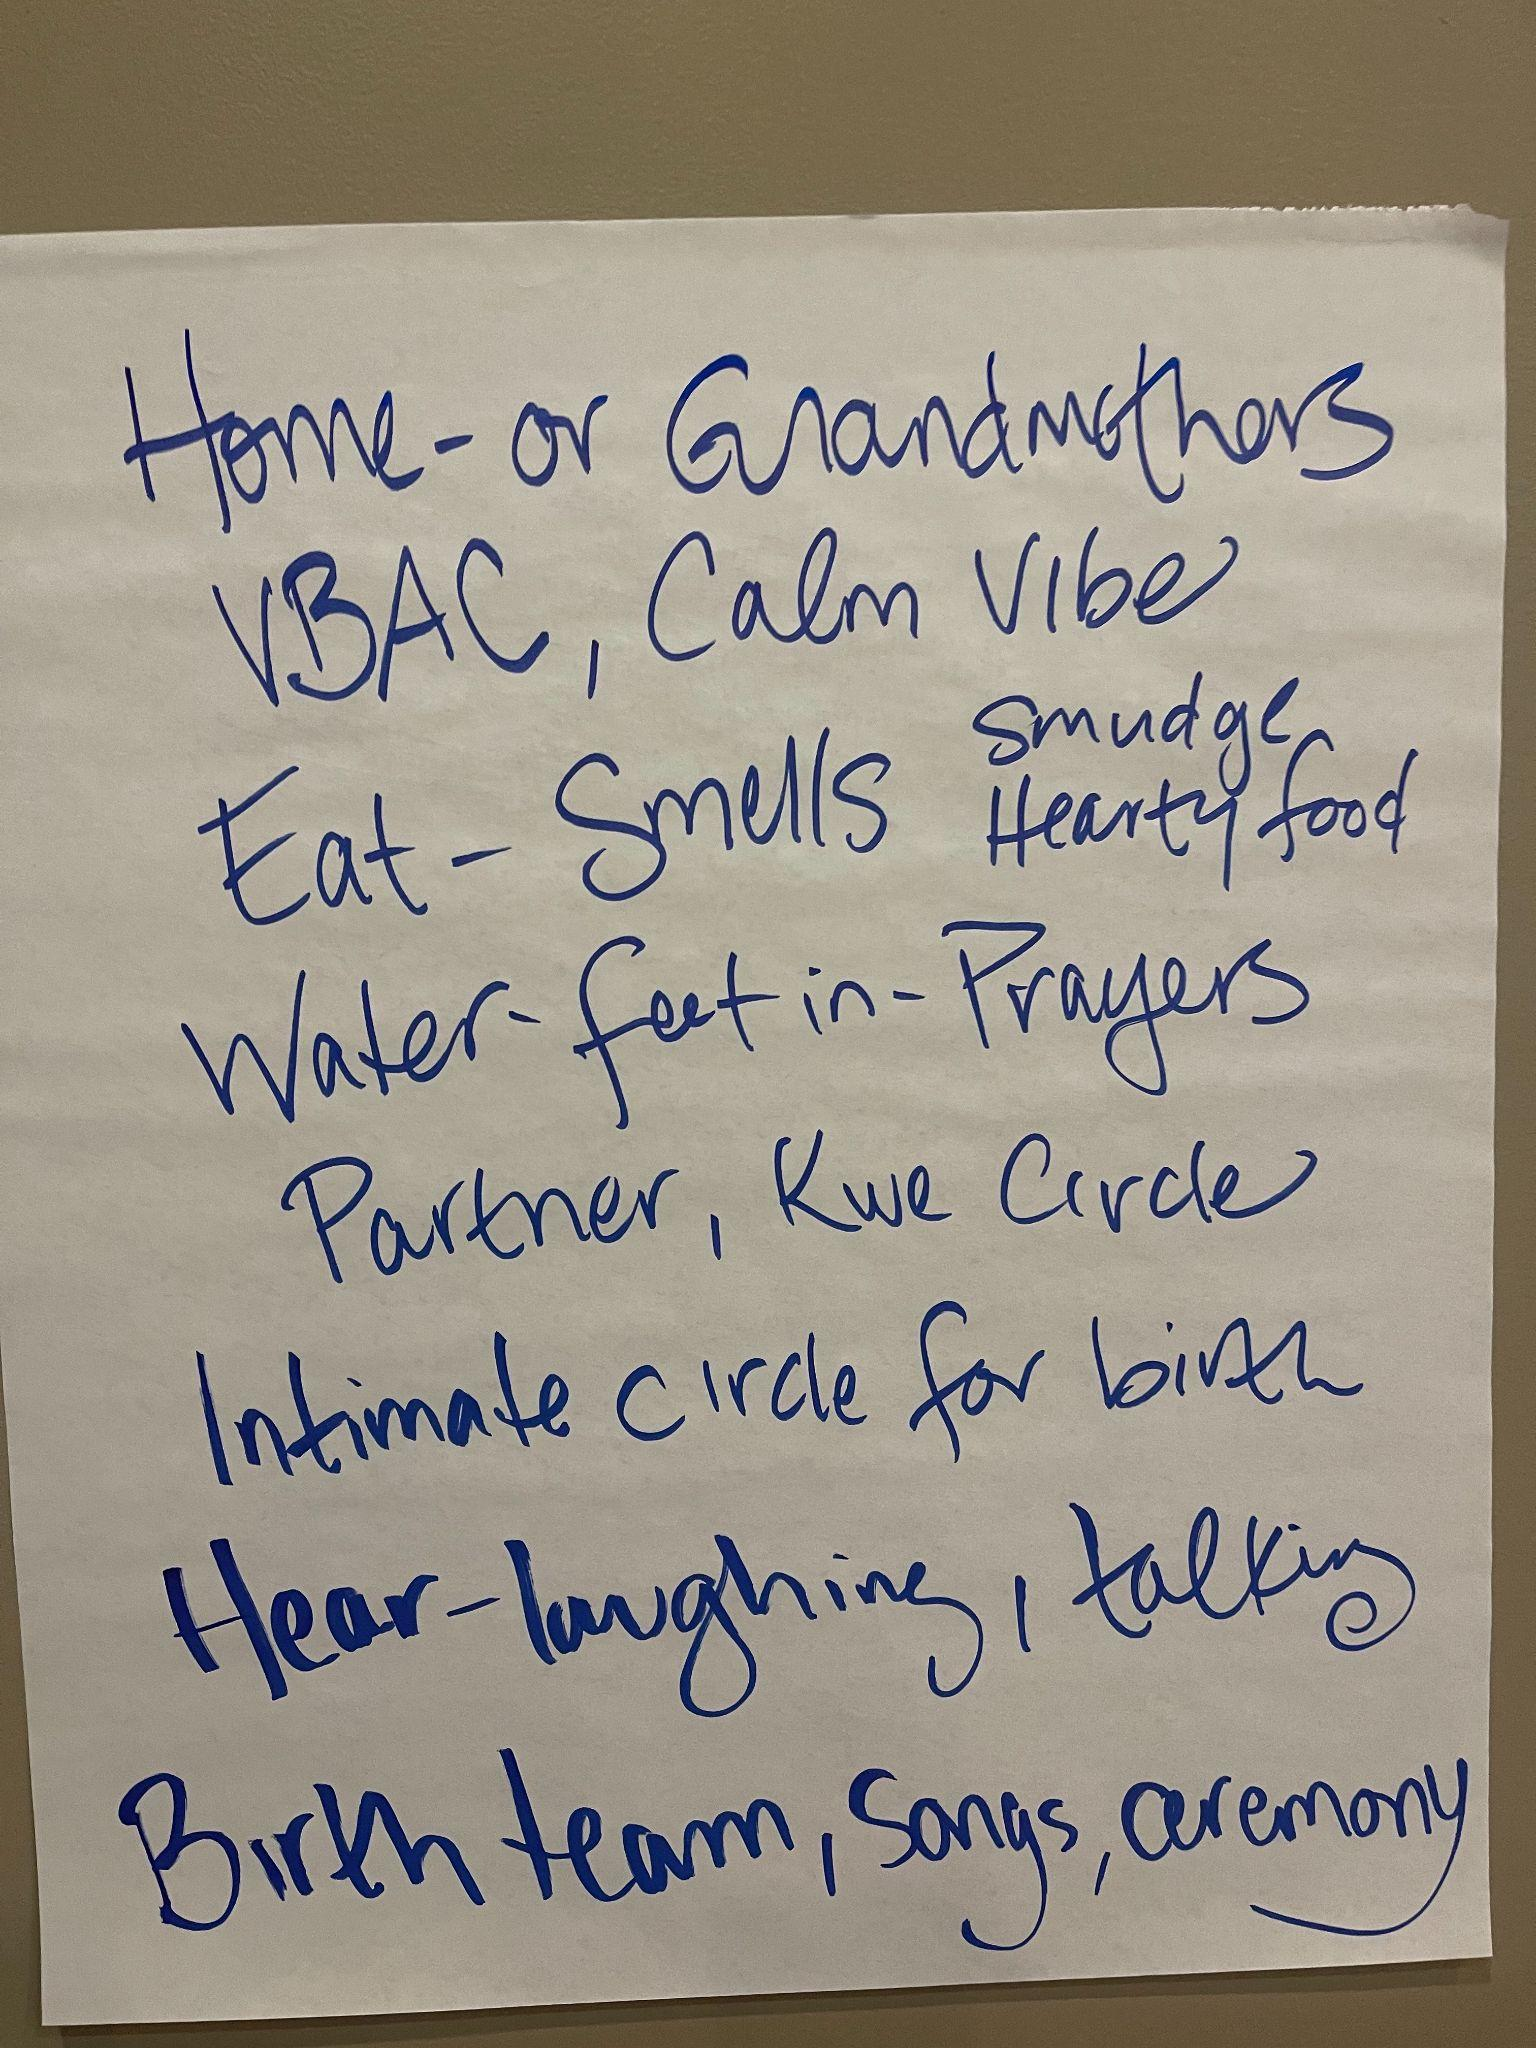 Home - or Grandmothers
VBAC, Calm Vibe
Eat - Smells smudge
Hearty food
Water - feet in - Prayers
Partner, Kwe Circle
Intimate circle for birth
Hear - laughing, talking
Birth team, Songs, ceremony